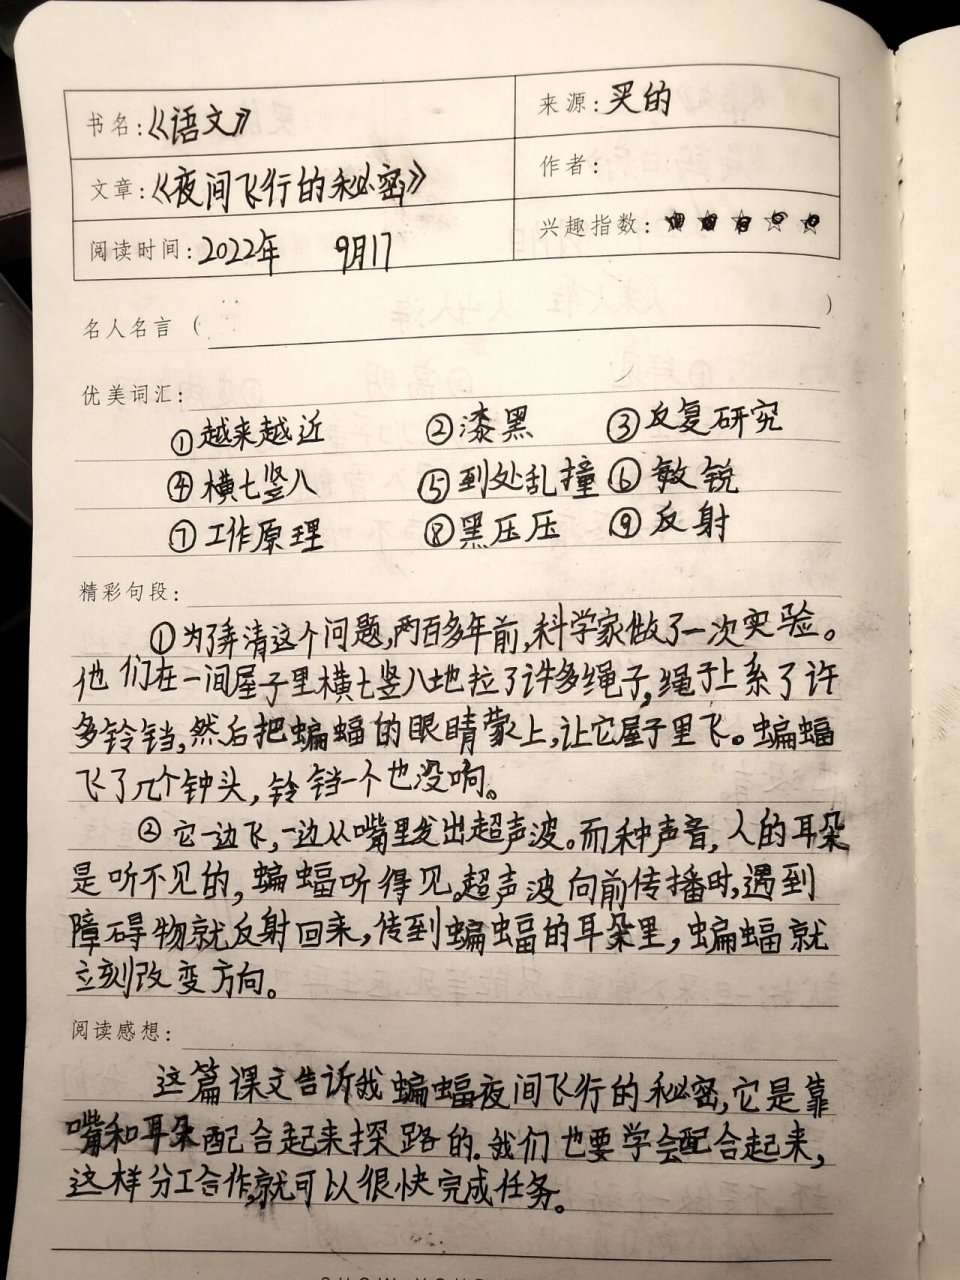 书名:《语文》 来源:买的
文章:《夜间飞行的秘密》 作者:
阅读时间:2022年 9月17 兴趣指数:
名人名言( )
优美词汇:
①越来越近 ②漆黑 ③反复研究
④横七竖八 ⑤到处乱撞 ⑥敏锐
⑦工作原理 ⑧黑压压 ⑨反射
精彩句段:
①为了弄清这个问题,两百多年前,科学家做了一次实验。
他们在一间屋子里横七竖八地拉了许多绳子,绳子上系了许
多铃铛,然后把蝙蝠的眼睛蒙上,让它屋子里飞。蝙蝠
飞了几个钟头,铃铛一个也没响。
②它一边飞,一边从嘴里发出超声波。而种声音,人的耳朵
是听不见的,蝙蝠听得见。超声波向前传播时,遇到
障碍物就反射回来,传到蝙蝠的耳朵里,蝙蝠就
立刻改变方向。
阅读感想:
这篇课文告诉我蝙蝠夜间飞行的秘密,它是靠
嘴和耳朵配合起来探路的.我们也要学会配合起来,
这样分工合作,就可以很快完成任务。